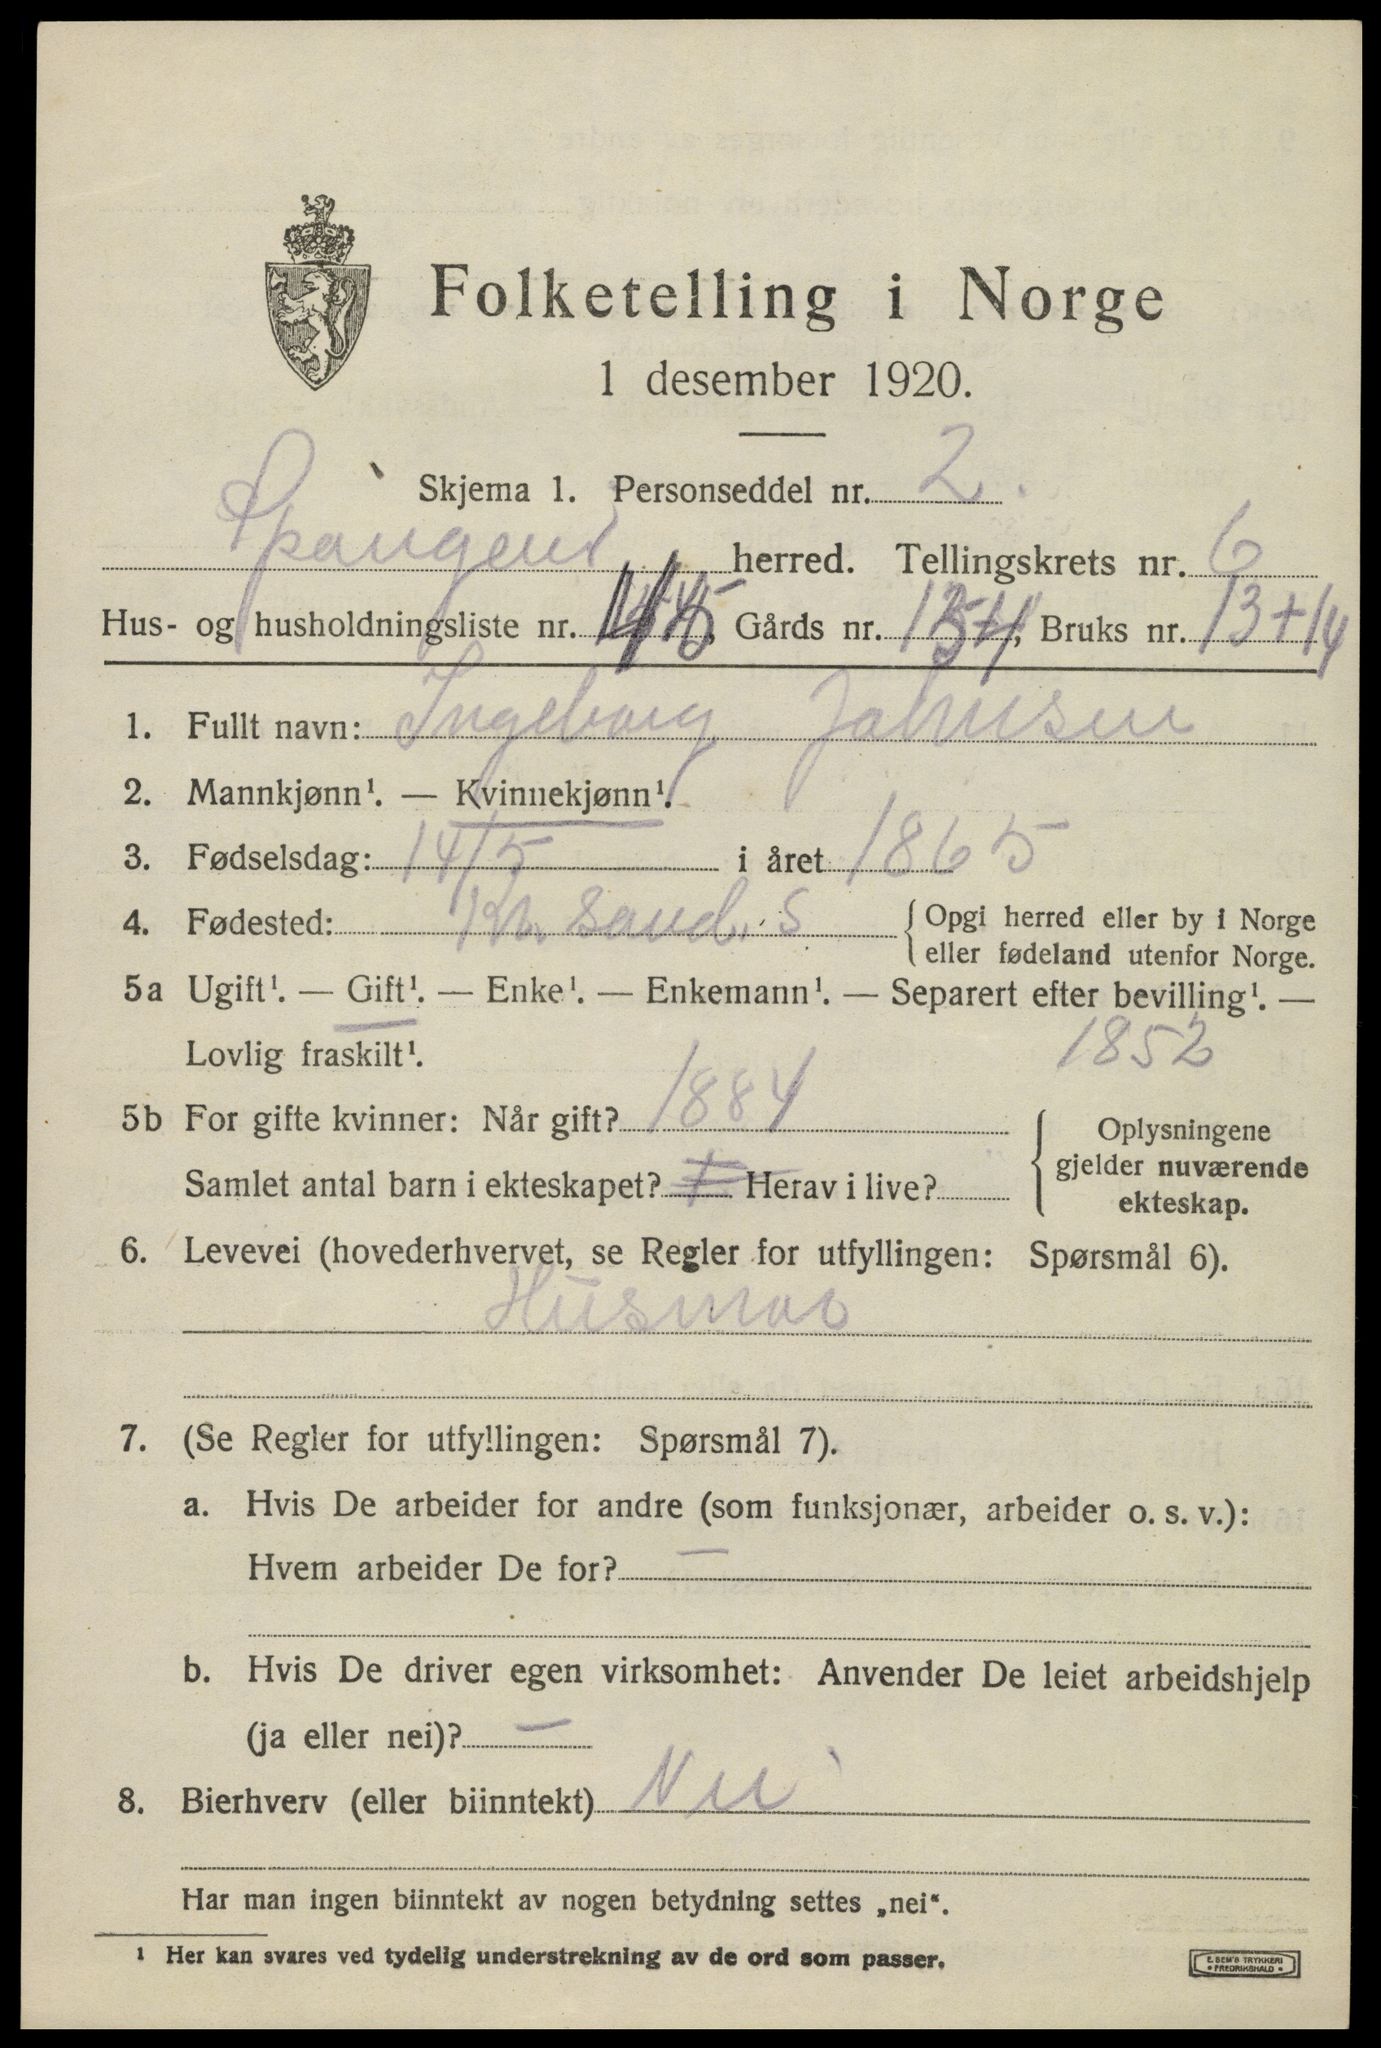 Folketelling i Norge
1 desember 1920.
Skjema 1. Personseddel nr. 2.
herred. Tellingskrets nr. 6
Hus- og husholdningsliste nr. Gårds nr. Bruks nr. 13+14
1. Fullt navn: Ingeborg Johnsen
2. Mannkjønn¹. — Kvinnekjønn¹.
3. Fødselsdag: 14/5 i året 1865
4. Fødested: Kr. sand. S { Opgi herred eller by i Norge
eller fødeland utenfor Norge.
5a Ugift¹. — Gift¹. — Enke¹. — Enkemann¹. — Separert efter bevilling¹. —
Lovlig fraskilt¹. 1852
5b For gifte kvinner: Når gift? 1884
Samlet antal barn i ekteskapet? Herav i live?
Oplysningene
gjelder nuværende
ekteskap.
6. Levevei (hovederhvervet, se Regler for utfyllingen: Spørsmål 6).
Husmor
7. (Se Regler for utfyllingen: Spørsmål 7).
a. Hvis De arbeider for andre (som funksjonær, arbeider o. s. v.):
Hvem arbeider De for? —
b. Hvis De driver egen virksomhet: Anvender De leiet arbeidshjelp
(ja eller nei)? —
8. Bierhverv (eller biinntekt) Nei
Har man ingen biinntekt av nogen betydning settes „nei“.
¹ Her kan svares ved tydelig understrekning av de ord som passer.
E. SEM'S TRYKKERI
• FREDRIKSHALD •